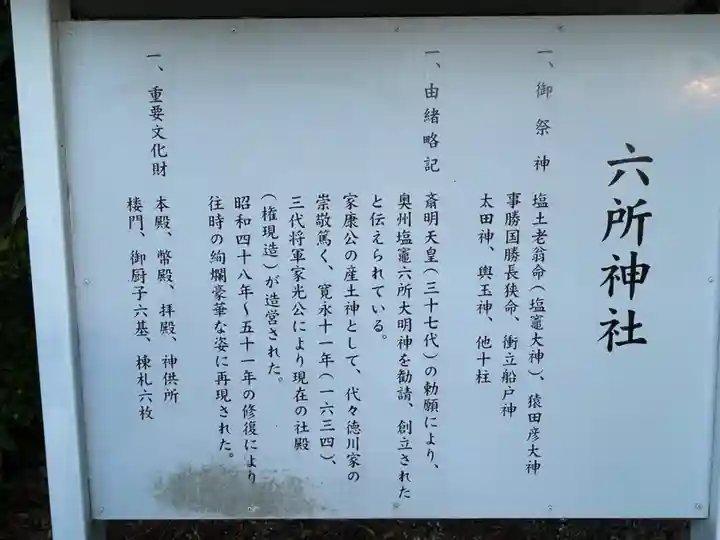 六所神社
一、御祭神
塩土老翁命（塩竈大神）、猿田彦大神
事勝国勝長狭命、衝立船戸神
太田神、興玉神、他十柱
一、由緒略記
斎明天皇（三十七代）の勅願により、
奥州塩竈六所大明神を勧請、創立された
と伝えられている。
家康公の産土神として、代々徳川家の
崇敬篤く、寛永十一年（一六三四）、
三代将軍家光公により現在の社殿
（権現造）が造営された。
昭和四十八年～五十一年の修復により
往時の絢爛豪華な姿に再現された。
一、重要文化財
本殿、幣殿、拝殿、神供所
楼門、御厨子六基、棟札六枚